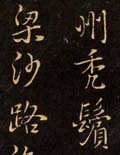 州禿鬢
梁沙路